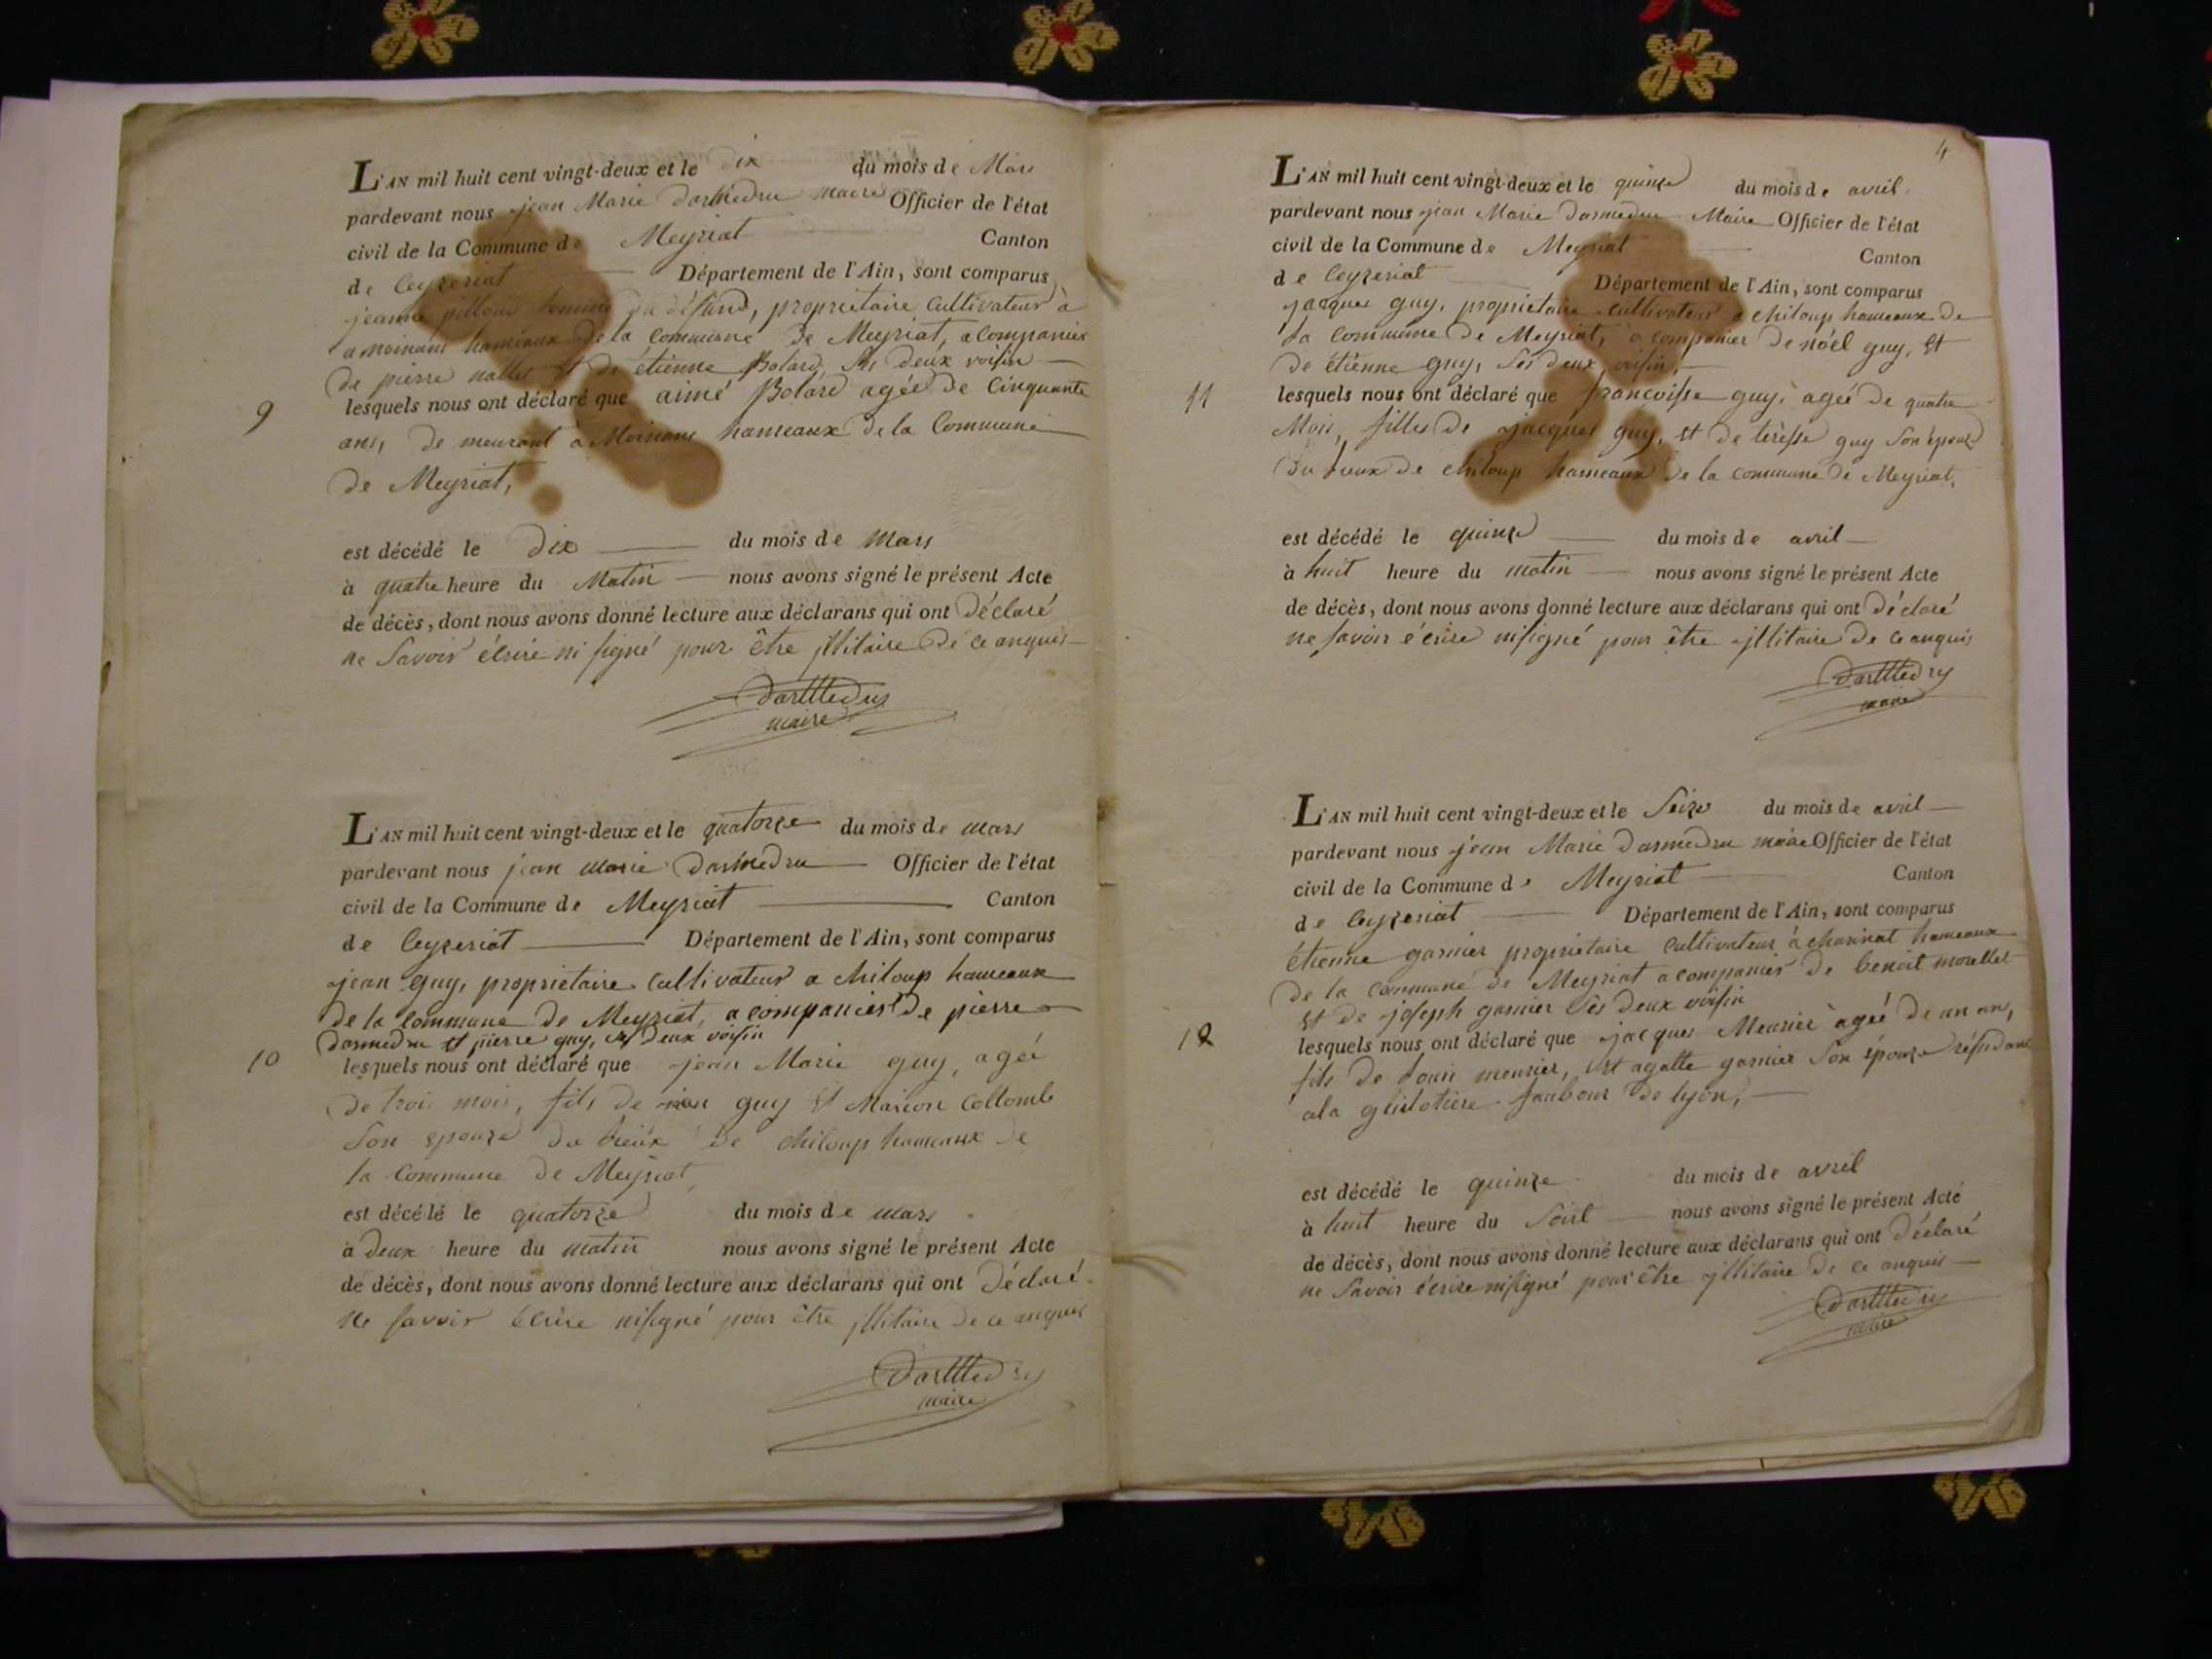 L'AN mil huit cent vingt-deux et le dix du mois de Mars
pardevant nous jean Marie darmedru maire Officier de l'état
civil de la Commune de Meyriat Canton
de Ceyzeriat Département de l'Ain, sont comparus
jeanne femme du défund, proprietaire Cultivateur à
a moinans hameaux de la Commune de Meyriat, acompanier
de pierre nallet et de étienne Bolard, ses deux voisin
9
lesquels nous ont déclaré que aimé Bolard agée de Cinquante
ans, de meurant à Moinans hameaux de la Commune
de Meyriat,
est décédé le dix du mois de Mars
à quatre heure du Matin nous avons signé le présent Acte
de décès, dont nous avons donné lecture aux déclarans qui ont déclaré
ne Savoir écrire ni signé pour être jllitaire de ce anquis
darmedru
maire
L'AN mil huit cent vingt-deux et le quatorze du mois de mars
pardevant nous jean marie darmedru Officier de l'état
civil de la Commune de Meyriat Canton
de Ceyzeriat Département de l'Ain, sont comparus
jean guy, propriétaire Cultivateur a chiloup hameaux
de la Commune de Meyriat, acompanier de pierre
darmedru et pierre guy, ses deux voisin
10
lesquels nous ont déclaré que jean Marie guy, agée
de trois mois, fils de jean guy et Marion Collomb
Son epouze du lieux de chiloup hameaux de
la Commune de Meyriat,
est décédé le quatorze du mois de mars
à deux heure du matin nous avons signé le présent Acte
de décès, dont nous avons donné lecture aux déclarans qui ont déclaré
ne savoir écrire ni signé pour être jllitaire de ce anquis
darmedru
maire
4
L'AN mil huit cent vingt-deux et le quinze du mois de avril
pardevant nous jean Marie darmedru Maire Officier de l'état
civil de la Commune de Meyriat Canton
de Ceyzeriat Département de l'Ain, sont comparus
jacques guy, propriétaire cultivateur a chiloup hameaux de
la Commune de Meyriat, acompanier de nôel guy, et
de étienne guy, ses deux voisin,
11
lesquels nous ont déclaré que francoisse guy, agée de quatre
Mois, filles de jacques guy, et de terèsse guy Son épouze
du lieux de chiloup hameaux de la commune de Meyriat,
est décédé le quinze du mois de avril
à huit heure du matin nous avons signé le présent Acte
de décès, dont nous avons donné lecture aux déclarans qui ont déclaré
ne savoir écrire ni signé pour être jllitaire de ce anquis
darmedru
maire
L'AN mil huit cent vingt-deux et le Seize du mois de avril
pardevant nous jean Marie darmedru maire Officier de l'état
civil de la Commune de Meyriat Canton
de Ceyzeriat Département de l'Ain, sont comparus
étienne garnier propriétaire Cultivateur à charinat hameaux
de la Commune de Meyriat acompanier de benoit morellet
et de joseph garnier Ses deux voisin
12
lesquels nous ont déclaré que jacques Meunier agée de un ans,
fils de Louis meunier, et agatte garnier Son épouze résidans
ala guilotiere faubour de lyon,
est décédé le quinze du mois de avril
à huit heure du Soirt nous avons signé le présent Acte
de décès, dont nous avons donné lecture aux déclarans qui ont déclaré
ne Savoir écrire ni signé pour être jllitaire de ce anquis
darmedru
maire